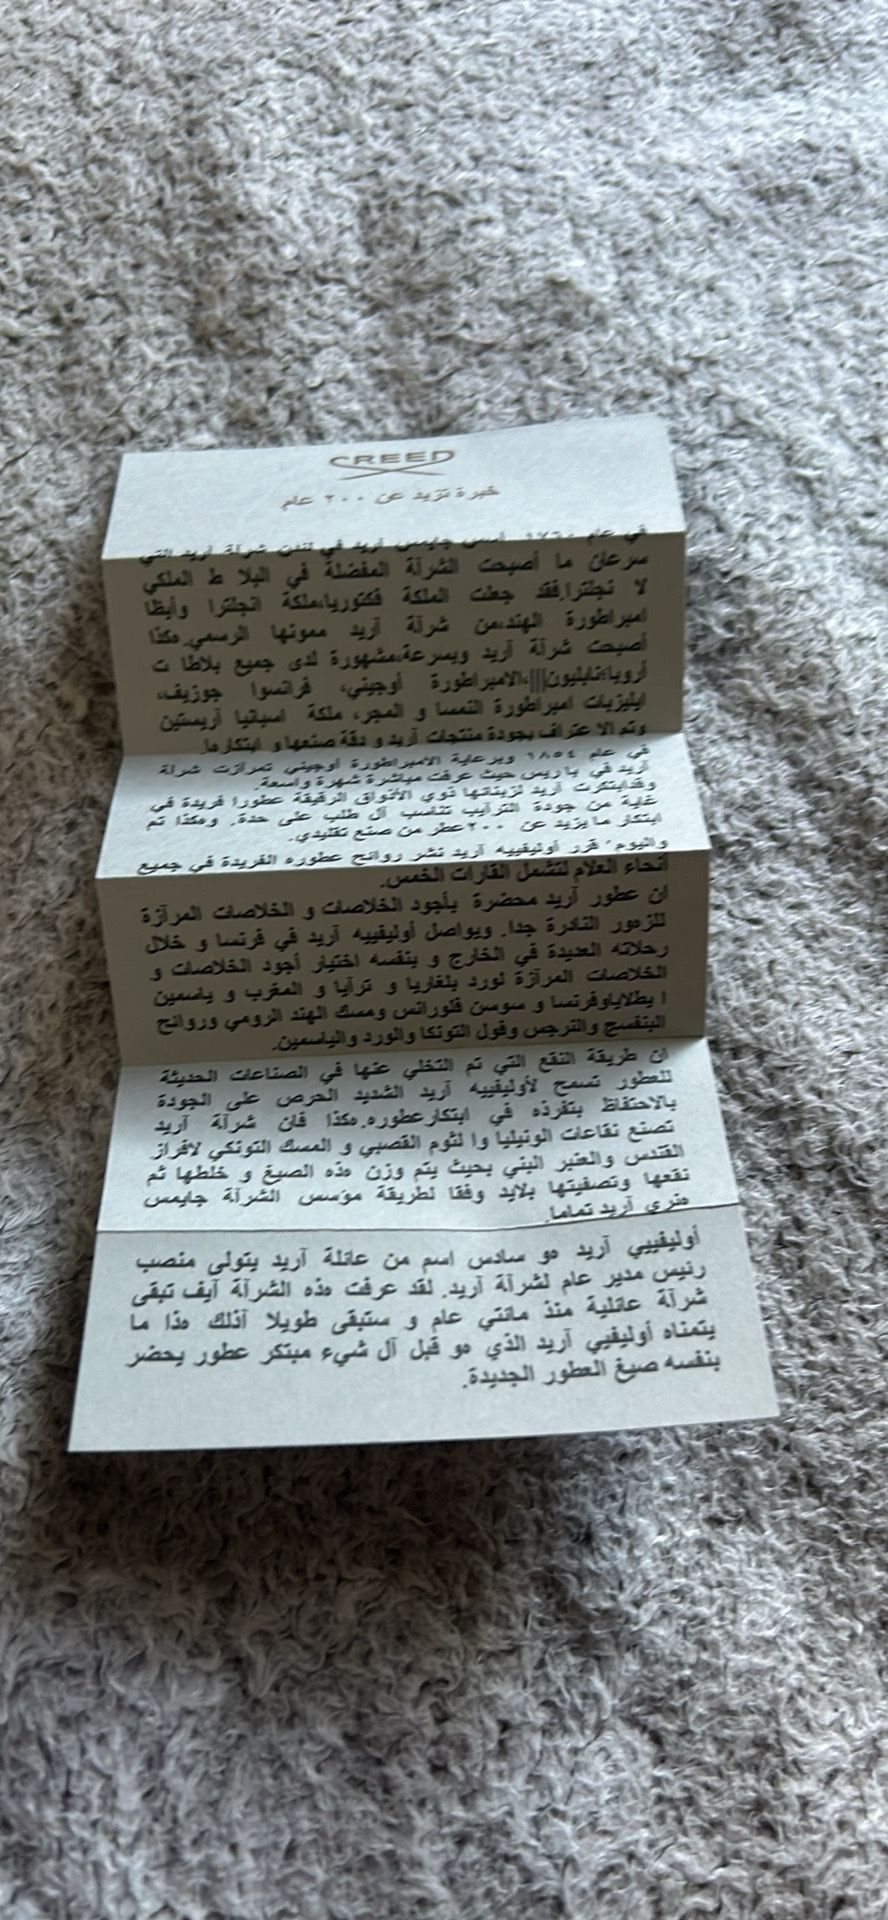 CREED
خبرة تزيد عن ٢٠٠ عام
في عام ١٧٦٠ أسس جايمس آريد في لندن شرآة آريد التي
سرعان ما أصبحت الشرآة المفضلة في البلا ط الملكي
لا نجلترا.فقد جعلت الملكة فكتوريا،ملكة انجلترا وأيظا
امبراطورة الهند،من شرآة آريد ممونها الرسمي.هكذا
أصبحت شرآة آريد وبسرعة،مشهورة لدى جميع بلاطا ت
أروبا،نابليون|||،الامبراطورة أوجيني، فرانسوا جوزيف،
ايليزيات امبراطورة النمسا و المجر، ملكة اسبانيا آريستين
وتم الا عتراف بجودة منتجات آريد و دقة صنعها و ابتكارها.
في عام ١٨٥٤ وبرعاية الامبراطورة أوجيني تمرآزت شرآة
آريد في با ريس حيث عرفت مباشرة شهرة واسعة.
وقدابتكرت آريد لزبنائها ذوي الأذواق الرفيعة عطورا فريدة في
غاية من جودة الترآيب تناسب آل طلب على حدة. وهكذا تم
ابتكار ما يزيد عن ٢٠٠عطر من صنع تقليدي.
واليوم، قرر أوليفييه آريد نشر روائح عطوره الفريدة في جميع
أنحاء العلام لتشمل القارات الخمس.
ان عطور آريد محضرة بأجود الخلاصات و الخلاصات المرآزة
للزهور النادرة جدا. ويواصل أوليفييه آريد في فرنسا و خلال
رحلاته العديدة في الخارج و بنفسه اختيار أجود الخلاصات و
الخلاصات المرآزة لورد بلغاريا و ترآيا و المغرب و ياسمين
ا يطلاياوفرنسا و سوسن فلورانس ومسك الهند الرومي وروائح
البنفسج والنرجس وفول التونكا والورد والياسمين.
ان طريقة النقع التي تم التخلي عنها في الصناعات الحديثة
للعطور تسمح لأوليفييه آريد الشديد الحرص على الجودة
بالاحتفاظ بتفرذه في ابتكارعطوره.هكذا فان شرآة آريد
تصنع نقاعات الونيليا وا لثوم القصبي و المسك التونكي لافراز
القتدس والعنبر البني بحيث يتم وزن هذه الصيغ و خلطها ثم
نقعها وتصفيتها بلايد وفقا لطريقة مؤسس الشرآة جايمس
هنري آريد تماما.
أوليفييي آريد هو سادس اسم من عائلة آريد يتولى منصب
رئيس مدير عام لشرآة آريد. لقد عرفت هذه الشرآة آيف تبقى
شرآة عائلية منذ مائتي عام و ستبقى طويلا آذلك هذا ما
يتمناه أوليفيي آريد الذي هو قبل آل شيء مبتكر عطور يحضر
بنفسه صيغ العطور الجديدة.